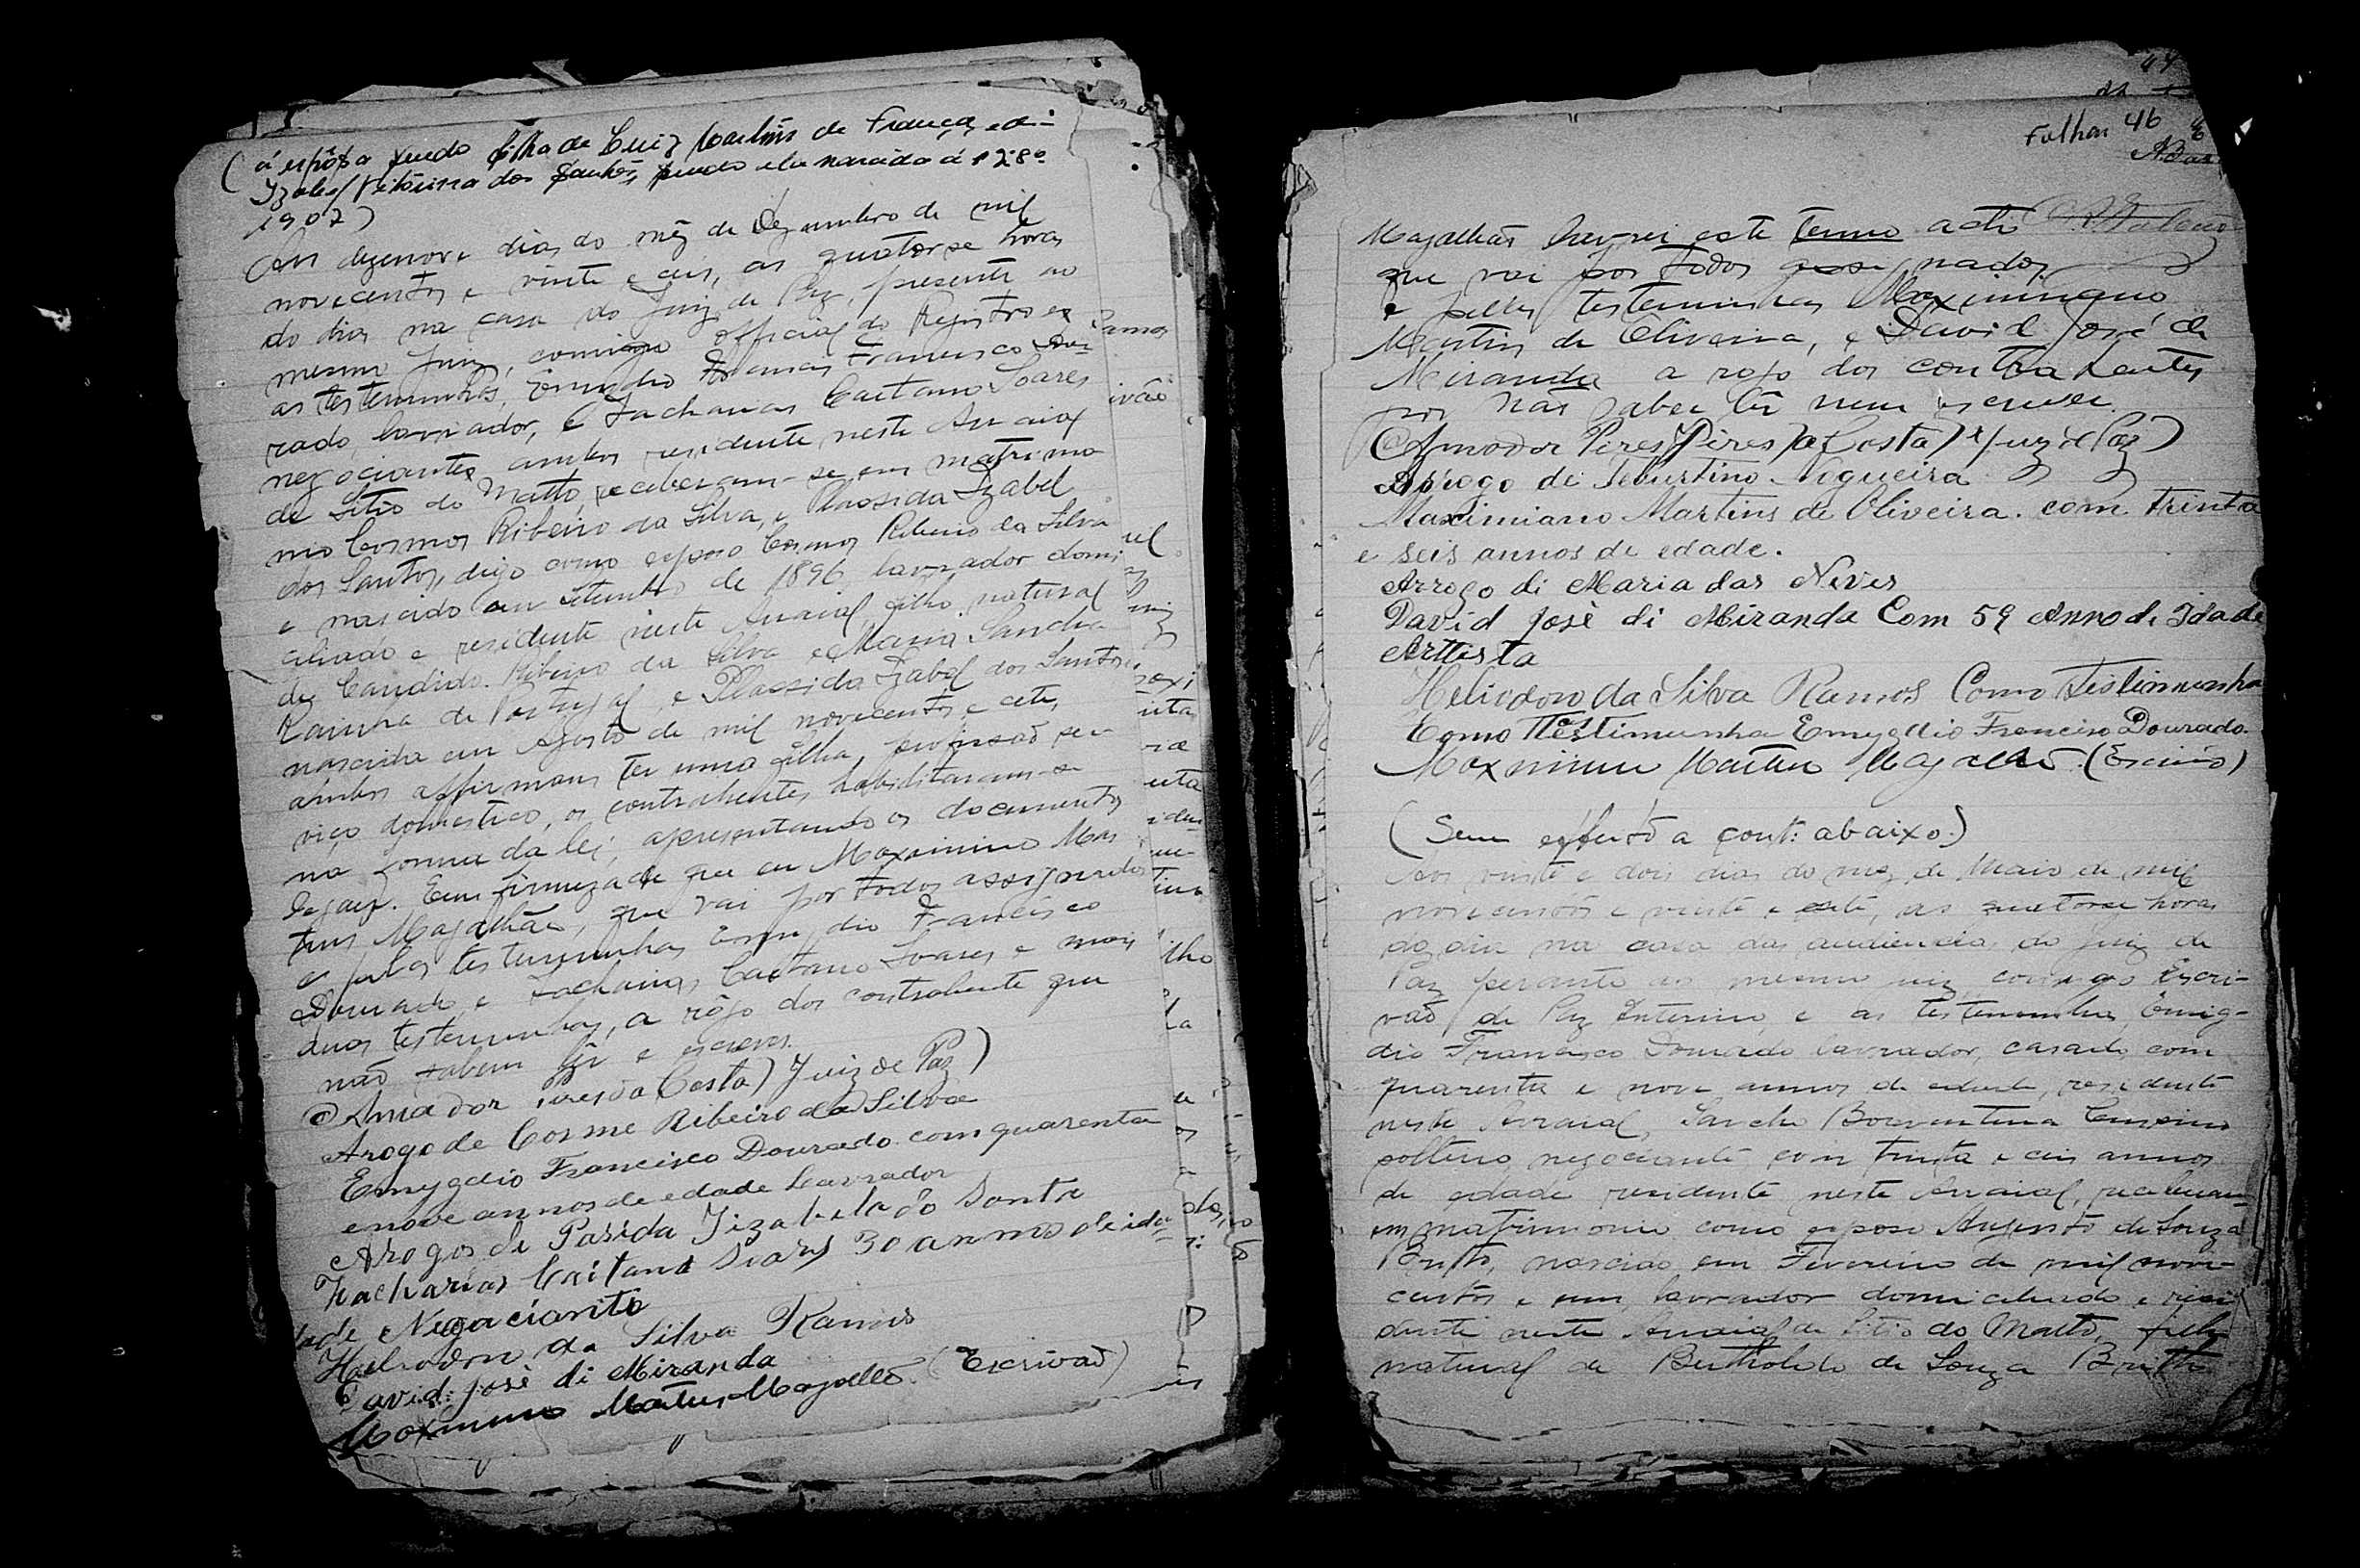 (á espôsa sendo filha de Luiz Martins de França, e di-
Izabel Vitorina dos Santos, sendo ela nascida á 28
1907)
Aos dezenove dias do mêz de Dezembro de mil
novecentos e vinte e seis, as quatorse horas
do dia na casa do Juiz de Paz, presente ao
mesmo Juiz, comigo official do Registro e
as testemunhas, Emygdio Francisco Dou-
rado, lavrador, e Zacharias Caetano Soares
negociante, ambos residente neste Arraial
de Sitio do Matto, receberam-se em matrimo
nio Cosmos Ribeiro da Silva, e Plassida Izabel
dos Santos, digo como esposo Cosmos Ribeiro da Silva
e nascido em Setembro de 1896 lavrador domi
ciliado e residente neste Arraial, filho natural
de Candido Ribeiro da Silva e Maria Sancha
Rainha de Portugal, e Plassida Izabel dos Santos,
nascida em Agosto de mil novecentos e cete,
ambos affirmam ter uma filha, profissão ser
viço domestico, os contrahentes habilitaram-se
na forma da lei, apresentando os documentos
legaes. Em firmeza de que eu Maximino Mar
tins Magalhães, que vai por todos assignados
e pelas testemunhas Emygdio Francisco
Dourado, e Zacharias Caetano Soares e mais
duas testemunhas, a rôgo dos contrahente que
não sabem lêr e escrever.
Amador Pires da Costa) Juiz de Paz)
Arogo de Cosme Ribeiro da Silva
Emygdio Francisco Dourado com quarenta
e nove annos de edade Lavrador
Arogos de Pasida Jizabela do Santo
Zacharias Caitano Soares 30 annos de ida
dade Negocianto
Heliodoro da Silva Ramos
David José di Miranda
Maximino Martins Magalhães (Escrivão)
Folhas 46
Magalhães lavrei este termo acto
que vai por todos assinados
e pelas testemunhas Maximiano
Martins de Oliveira, e David José de
Miranda a rogo dos contrahentes
por não saber lêr nem escrever.
Amador Pires Pires da Costa) Juiz de Paz)
Aprogo di Tiburtino Nogueira
Maximiano Martins de Oliveira. com trinta
e seis annos de edade.
Arrogo di Maria das Neves
David José di Miranda Com 59 Anno di Idade
Arttista
Heliodoro da Silva Ramos Como Testiamunha
Como Testimunha Emygdio Francisco Dourado.
Maximino Martins Magalhães (Escrivão)
(Sem effeito a cont: abaixo.)
Aos vinte e dois dias do mez de Maio de mil
novecentos e vinte e cete, as quatorse horas
do dia na casa das audiencias do Juiz de
Paz perante ao mesmo juiz, comigo Escri-
vão de Paz Interino, e as testemunhas, Emig-
dio Francisco Dourado lavrador, casado com
quarenta e nove annos de edade, residente
neste Arraial, Sancho Boaventura
solteiro, negociante com trinta e seis annos
de edade residente neste Arraial, receberam
em matrimonio como esposo Augusto de Souza
Britto, nascido em Fevereiro de mil nove-
centos e um, lavrador domiciliado e resi
dente neste Arraial de Sitio do Matto, filho
natural de Bertholdo de Souza Britto